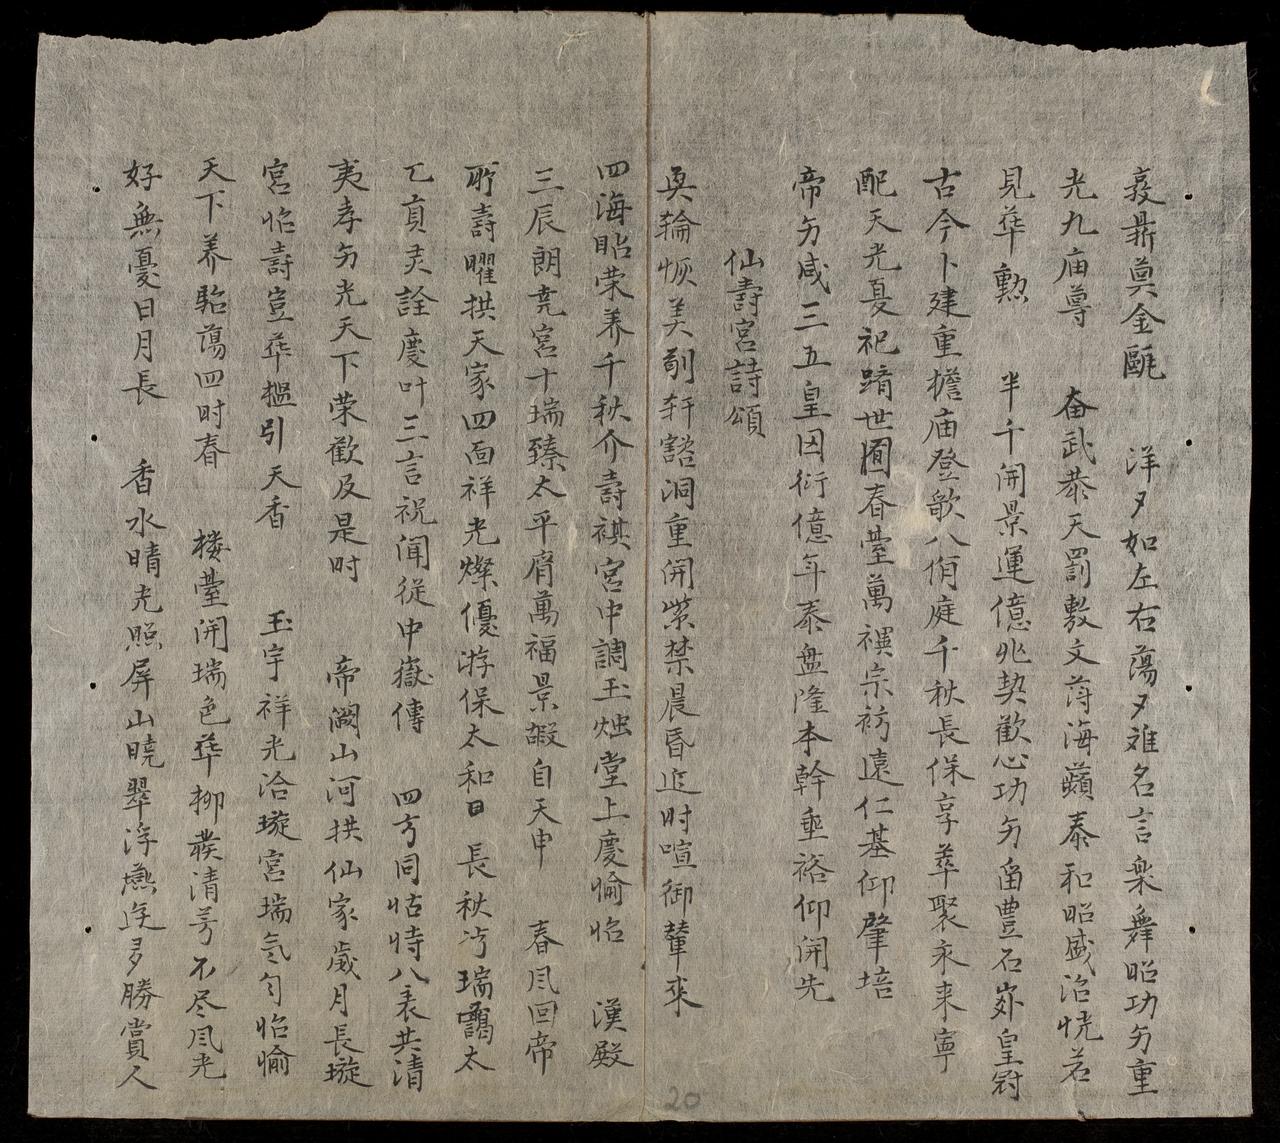 鼎奠金甌 洋〻如左右蕩〻难名言樂舞昭功㐹重
光九庙尊 奋武恭天罰敷文蒔海蘋泰和昭盛治恍若
見華勲 半千開景運億兆契歡心功㐹畱豊石巋皇冠
古今卜建重檐庙登歌八佾庭千秋長保享萃聚永来寧
配天光夏祀躋世囿春臺萬禩宗祊遠仁基仰肇培
帝㐹咸三五皇因衍億年泰盘隆本幹垂裕仰開先
仙壽宮詩頌
奂輪恢美制軒豁洞重開紫禁晨昏近时喧御輦來
四海貽荣养千秋介壽祺宮中調玉烛堂上慶愉怡 漢殿
三辰朗尭宮十瑞臻太平膺萬福景嘏自天申 春凮回帝
所壽曜拱天家四面祥光燦優游保太和日 長秋瑞靄太
乙貢灵詮慶叶三言祝闻從中嶽傳 四方同怙恃八表共清
夷孝㐹光天下荣歡及是时 帝闕山河拱仙家歲月長璇
宮怡壽豈華榲引天香 玉宇祥光洽璇宮瑞氣匀怡愉
天下养駘蕩四时春 楼臺開瑞色華柳叢清芳不尽凮光
好無憂日月長 香水晴光照屏山曉翠浮燕逰多勝賞人
20